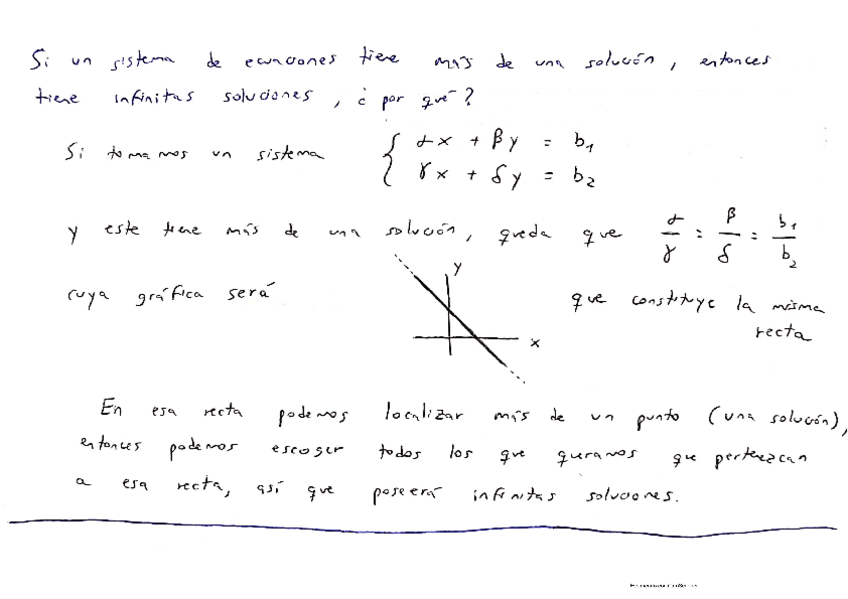 Si un sistema de ecuaciones tiene más de una solución, entonces
tiene infinitas soluciones, ¿por qué?
Si tomamos un sistema { αx + βy = b₁
γx + δy = b₂
y este tiene más de una solución, queda que α/γ = β/δ = b₁/b₂
cuya gráfica será y x que constituye la misma
recta
En esa recta podemos localizar más de un punto (una solución),
entonces podemos escoger todos los que queramos que pertenezcan
a esa recta, así que poseerá infinitas soluciones.